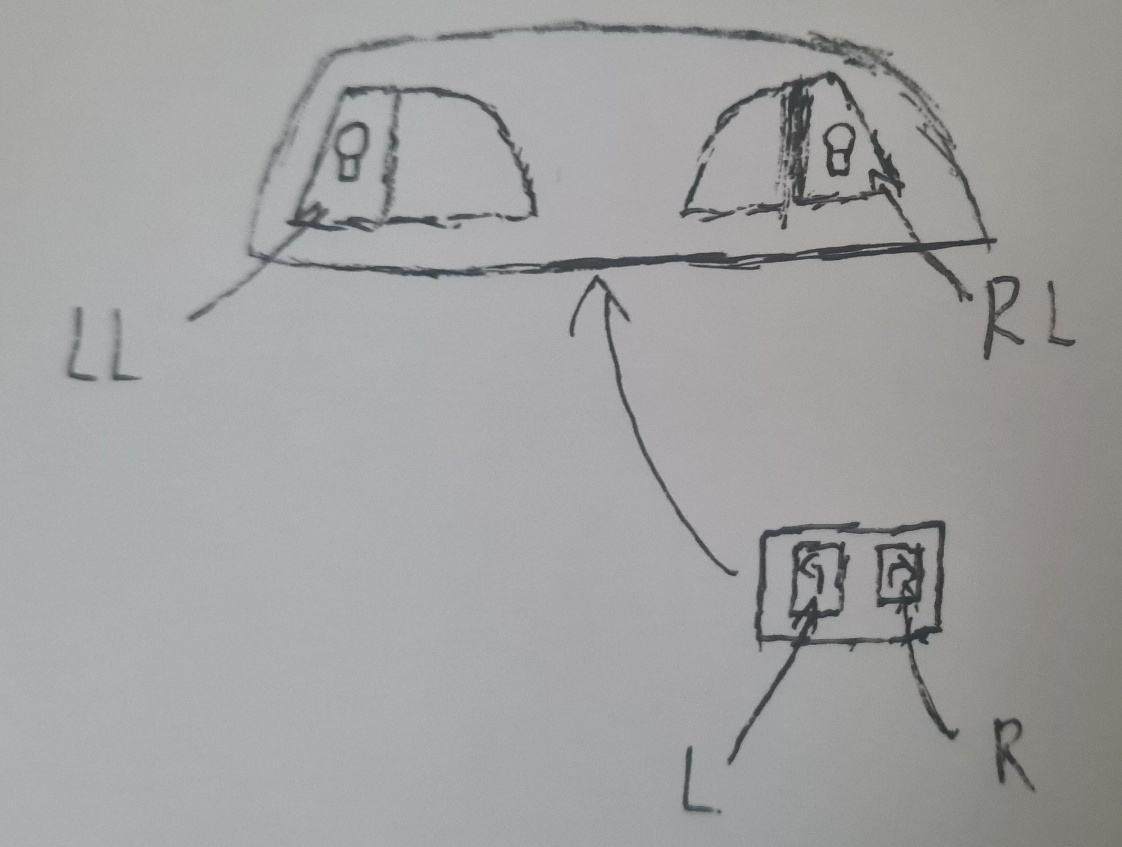 LL
RL
L
R